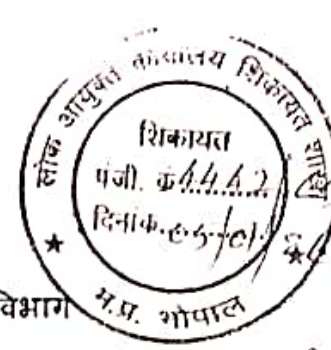 लोक आयुक्त कार्यालय शिकायत शाखा
शिकायत
पंजी. क्र.
दिनांक.
म.प्र. भोपाल
विभाग